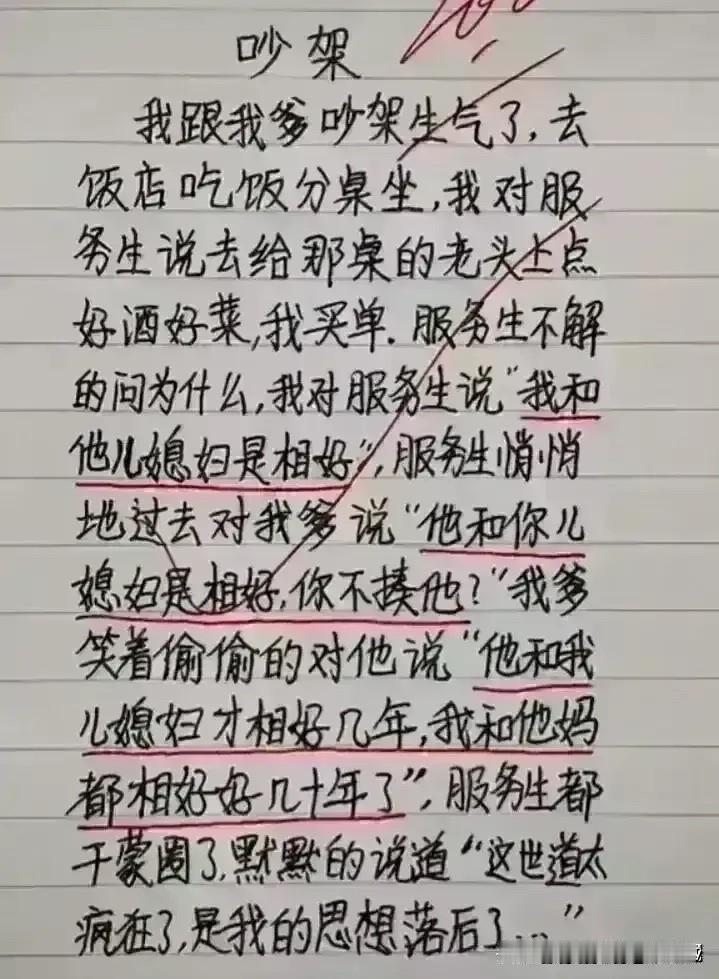 吵架
我跟我爹吵架生气了,去
饭店吃饭分桌坐,我对服
务生说去给那桌的老头上点
好酒好菜,我买单.服务生不解
的问为什么,我对服务生说“我和
他儿媳妇是相好”,服务生悄悄
地过去对我爹说“他和你儿
媳妇是相好,你不揍他?“我爹
笑着偷偷的对他说“他和我
儿媳妇才相好几年,我和他妈
都相好好几十年了”,服务生都
干蒙圈了,默默的说道“这世道太
疯狂了,是我的思想落后了...”